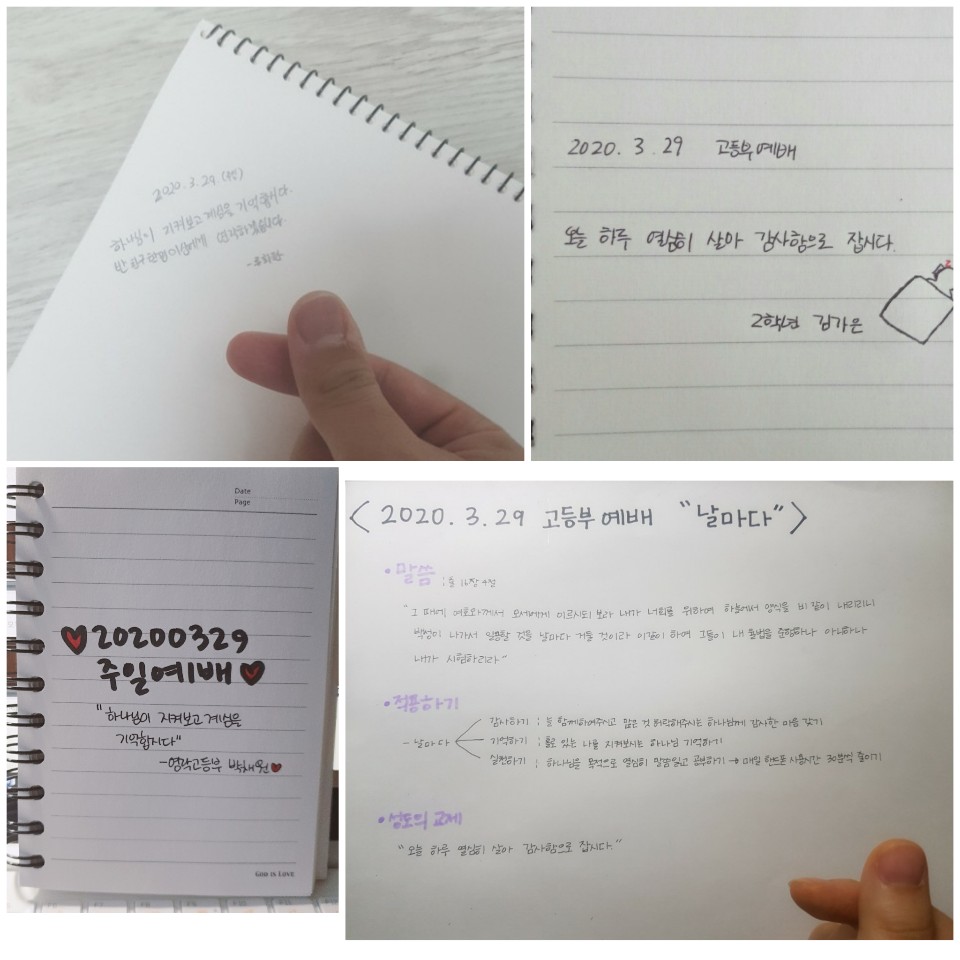 2020. 3. 29. (주일)
하나님이 지켜보고 계심을 기억합시다.
반 친구 한명 이상에게 연락하겠습니다.
2020. 3. 29 고등부예배
오늘 하루 열심히 살아 감사함으로 잡시다.
2학년 김가은
Date
Page
20200329
주일예배
"하나님이 지켜보고 계심을
기억합시다"
-영락고등부 박채원
GOD IS LOVE
<2020. 3. 29 고등부예배 "날마다">
•말씀 ; 출 16장 4절
"그 때에 여호와께서 모세에게 이르시되 보라 내가 너희를 위하여 하늘에서 양식을 비 같이 내리리니
백성이 나가서 일용할 것을 날마다 거둘 것이라 이같이 하여 그들이 내 율법을 준행하나 아니하나
내가 시험하리라"
•적용하기
-날마다
감사하기 ; 늘 함께하여주시고 많은 것 허락해주시는 하나님께 감사한 마음 갖기
기억하기 ; 홀로 있는 나를 지켜보시는 하나님 기억하기
실천하기 ; 하나님을 목적으로 열심히 말씀읽고 공부하기 → 매일 핸드폰 사용시간 30분씩 줄이기
•성도의 교제
"오늘 하루 열심히 살아 감사함으로 잡시다."